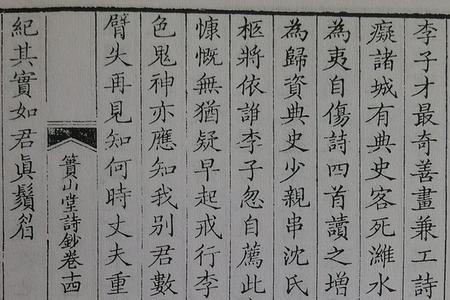 李子才最奇善畫兼工詩
癡諸城有典史客死濰水
為夷自傷詩四首讀之增
為歸資典史少親串沈氏
柩將依誰李子忽自薦此
慷慨無猶疑早起戒行李
色鬼神亦應知我别君數
臂失再見知何時丈夫重
簣山堂詩鈔卷十四
紀其實如君眞鬚眉